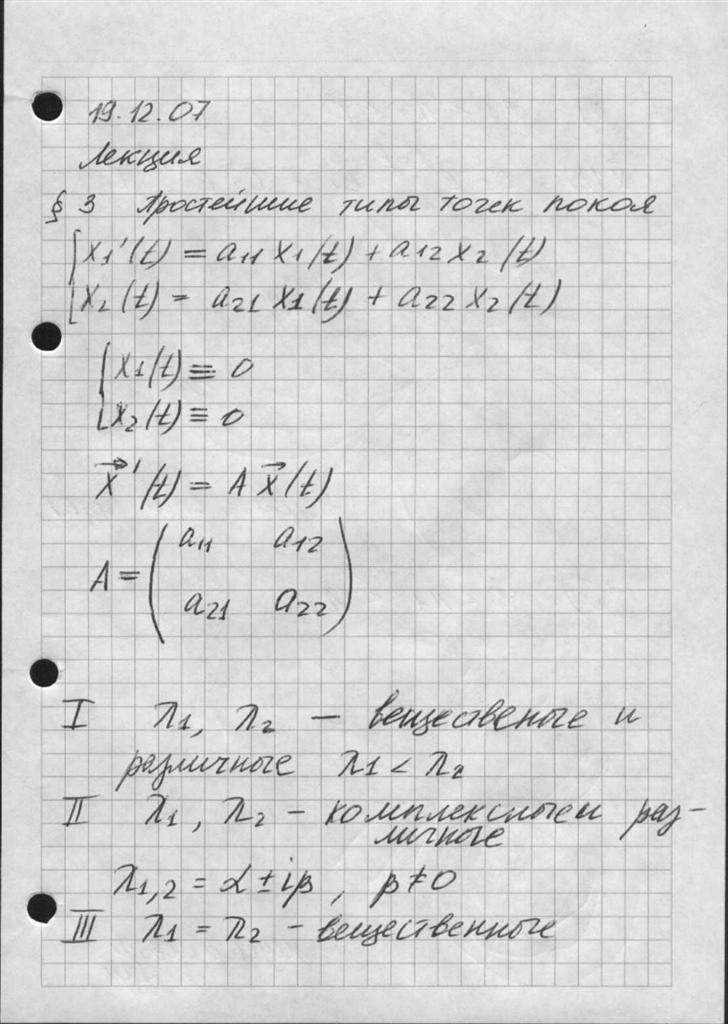 19.12.07
Лекция
§ 3 Простейшие типы точек покоя
{ x₁'(t) = a₁₁ x₁(t) + a₁₂ x₂(t)
{ x₂(t) = a₂₁ x₁(t) + a₂₂ x₂(t)
{ x₁(t) ≡ 0
{ x₂(t) ≡ 0
x⃗'(t) = A x⃗(t)
A = ( a₁₁ a₁₂
a₂₁ a₂₂ )
I λ₁, λ₂ — вещественые и
различные λ₁ < λ₂
II λ₁, λ₂ - комплексные и раз-
личные
λ₁,₂ = α ± iβ, β ≠ 0
III λ₁ = λ₂ - вещественные